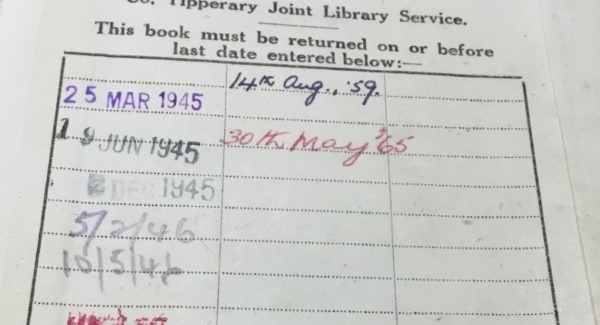 Co. Tipperary Joint Library Service.
This book must be returned on or before
last date entered below:—
25 MAR 1945
19 JUN 1945
2 DEC 1945
5/2/46
10/5/46
14th Aug., '59.
30th May '65